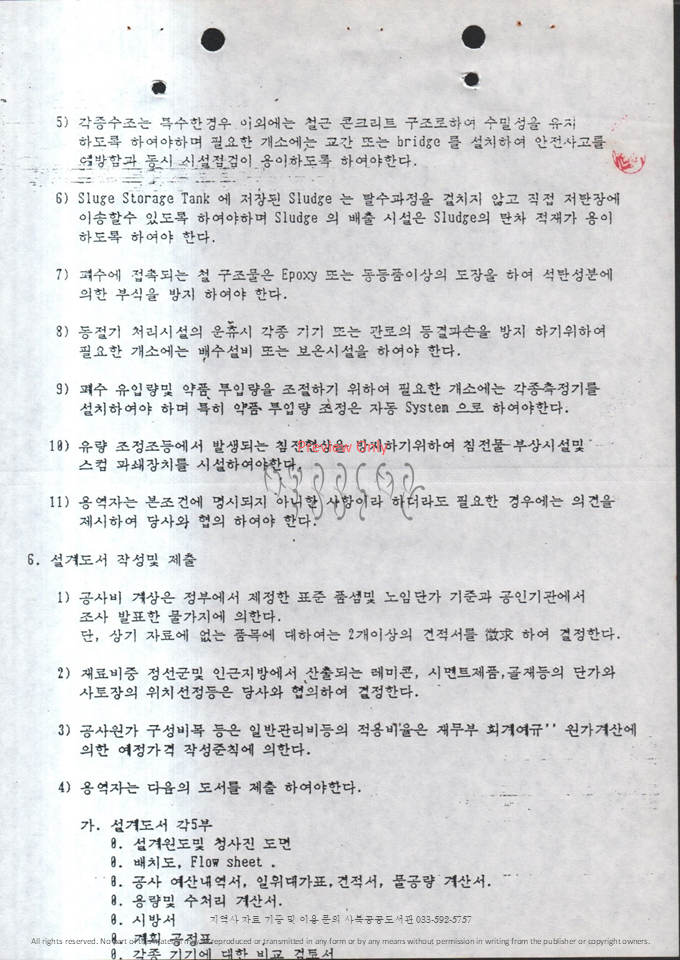 5) 각종수조는 특수한경우 이외에는 철근 콘크리트 구조로하여 수밀성을 유지
하도록 하여야하며 필요한 개소에는 교간 또는 bridge 를 설치하여 안전사고를
예방함과 동시 시설점검이 용이하도록 하여야한다.
6) Sluge Storage Tank 에 저장된 Sludge 는 탈수과정을 걸치지 않고 직접 저탄장에
이송할수 있도록 하여야하며 Sludge 의 배출 시설은 Sludge의 탄차 적재가 용이
하도록 하여야 한다.
7) 폐수에 접촉되는 철 구조물은 Epoxy 또는 동등품이상의 도장을 하여 석탄성분에
의한 부식을 방지 하여야 한다.
8) 동절기 처리시설의 운휴시 각종 기기 또는 관로의 동결파손을 방지 하기위하여
필요한 개소에는 배수설비 또는 보온시설을 하여야 한다.
9) 폐수 유입량및 약품 투입량을 조절하기 위하여 필요한 개소에는 각종측정기를
설치하여야 하며 특히 약품 투입량 조정은 자동 System 으로 하여야한다.
10) 유량 조정조등에서 발생되는 침전현상을 방지하기위하여 침전물 부상시설및
Preview Only
스컴 파쇄장치를 시설하여야한다.
11) 용역자는 본조건에 명시되지 아니한 사항이라 하더라도 필요한 경우에는 의견을
제시하여 당사와 협의 하여야 한다.
6. 설계도서 작성및 제출
1) 공사비 계상은 정부에서 제정한 표준 품셈및 노임단가 기준과 공인기관에서
조사 발표한 물가지에 의한다.
단, 상기 자료에 없는 품목에 대하여는 2개이상의 견적서를 徵求 하여 결정한다.
2) 재료비중 정선군및 인근지방에서 산출되는 레미콘, 시멘트제품,골재등의 단가와
사토장의 위치선정등은 당사와 협의하여 결정한다.
3) 공사원가 구성비목 등은 일반관리비등의 적용비율은 재무부 회계예규'' 원가계산에
의한 예정가격 작성준칙에 의한다.
4) 용역자는 다음의 도서를 제출 하여야한다.
가. 설계도서 각5부
0. 설계원도및 청사진 도면
0. 배치도, Flow sheet .
0. 공사 예산내역서, 일위대가표,견적서, 물공량 계산서.
0. 용량및 수처리 계산서.
0. 시방서
지역사 자료 기증 및 이용 문의 사북공공도서관 033-592-5757
0. 계획 공정표
All rights reserved. No part of this material may be reproduced or transmitted in any form or by any means without permission in writing from the publisher or copyright owners.
0. 각종 기기에 대한 비교 검토서